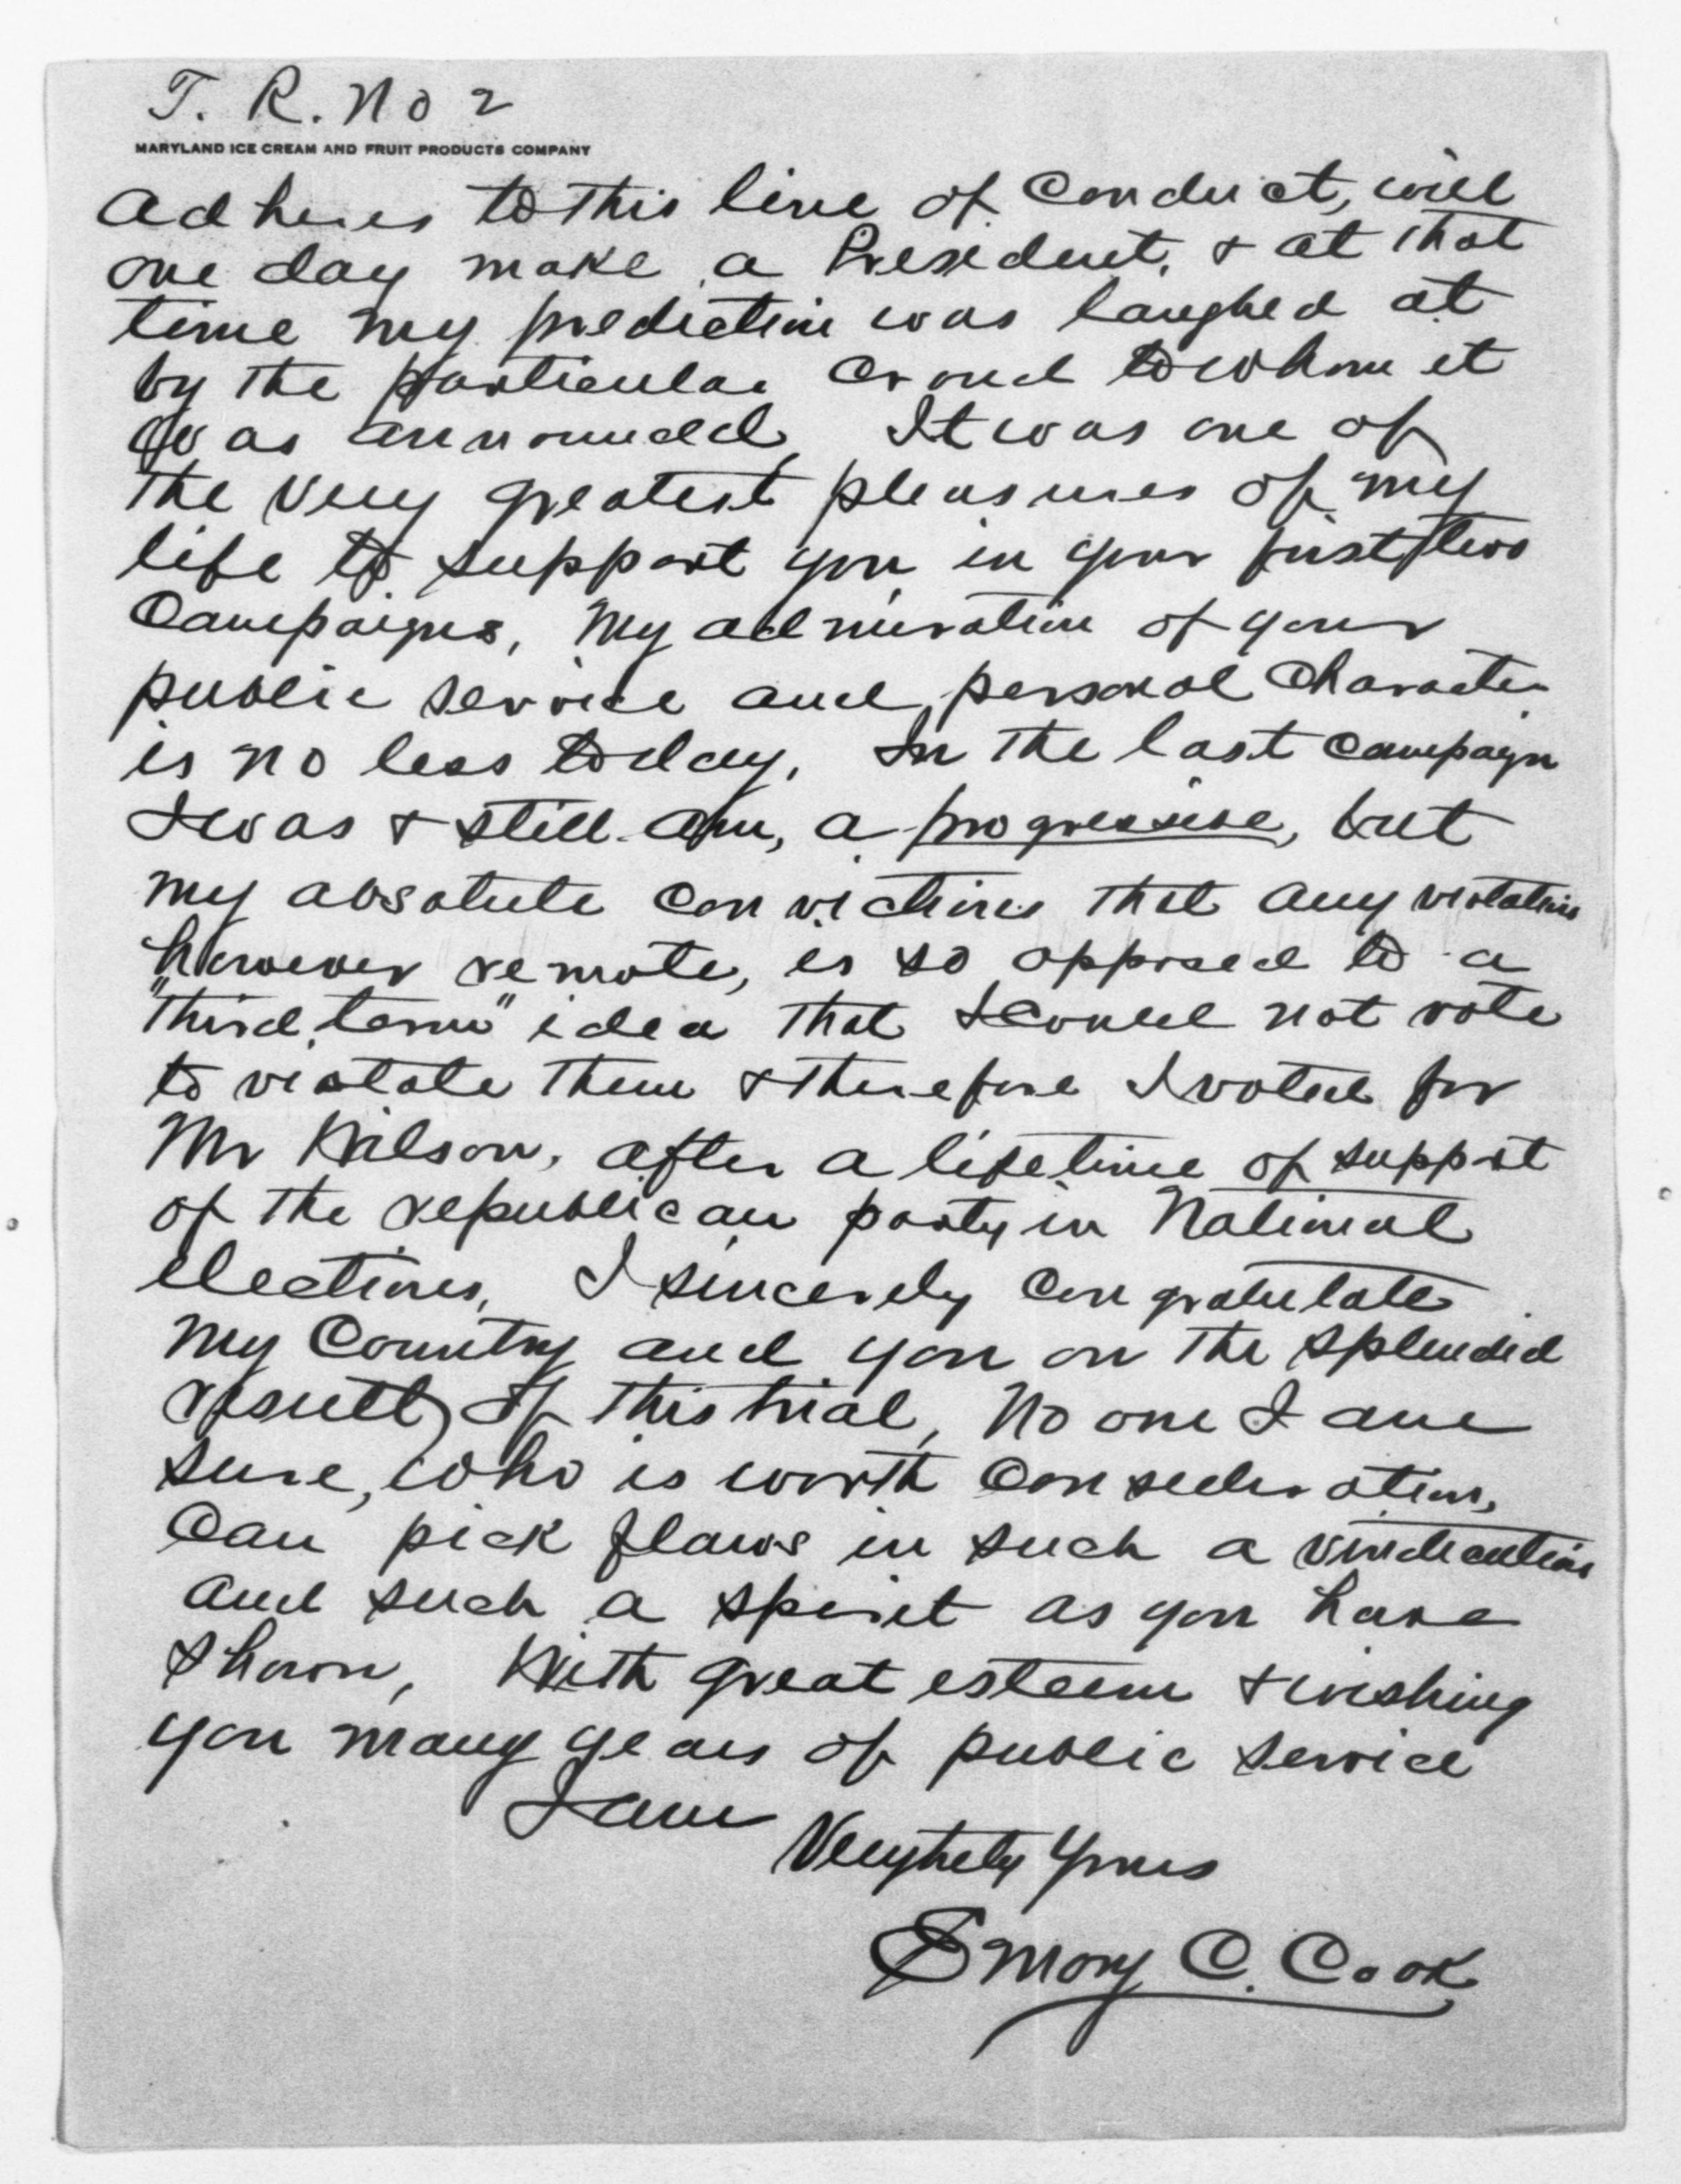 T. R. No 2
MARYLAND ICE CREAM AND FRUIT PRODUCTS COMPANY
adheres to this line of conduct, will
one day make a President, & at that
time my prediction was laughed at
by the particular crowd to whom it
was announced. It was one of
the very greatest pleasures of my
life to support you in your first two
Campaigns, My admiration of your
public service and personal character
is no less today. In the last campaign
I was & still am, a progressive, but
my absolute convictions that any violation
however remote, is so opposed to a
"third term" idea that I could not vote
to violate them & therefore I voted for
Mr Wilson, after a lifetime of support
of the republican party in National
elections, I sincerely congratulate
my Country and you on the splendid
result of this trial, No one I am
sure, who is worth consideration,
can pick flaws in such a vindication
and such a spirit as you have
shown, With great esteem & wishing
you many years of public service
I am
Very truly yours
Emory C. Cook